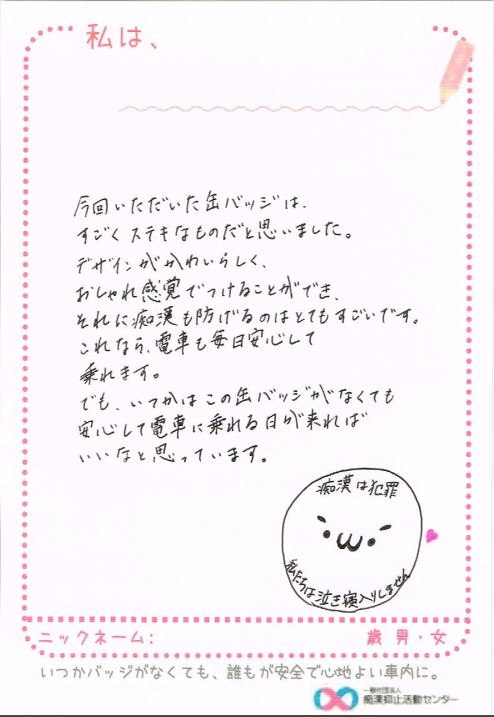 私は、
今回いただいた缶バッジは、
すごくステキなものだと思いました。
デザインがかわいらしく、
おしゃれ感覚でつけることができ、
それに痴漢も防げるのはとてもすごいです。
これなら、電車も毎日安心して
乗れます。
でも、いつかはこの缶バッジがなくても
安心して電車に乗れる日が来れば
いいなと思っています。
痴漢は犯罪
私たちは泣き寝入りしません
ニックネーム: 歳 男・女
いつかバッジがなくても、誰もが安全で心地よい車内に。
一般社団法人
痴漢抑止活動センター